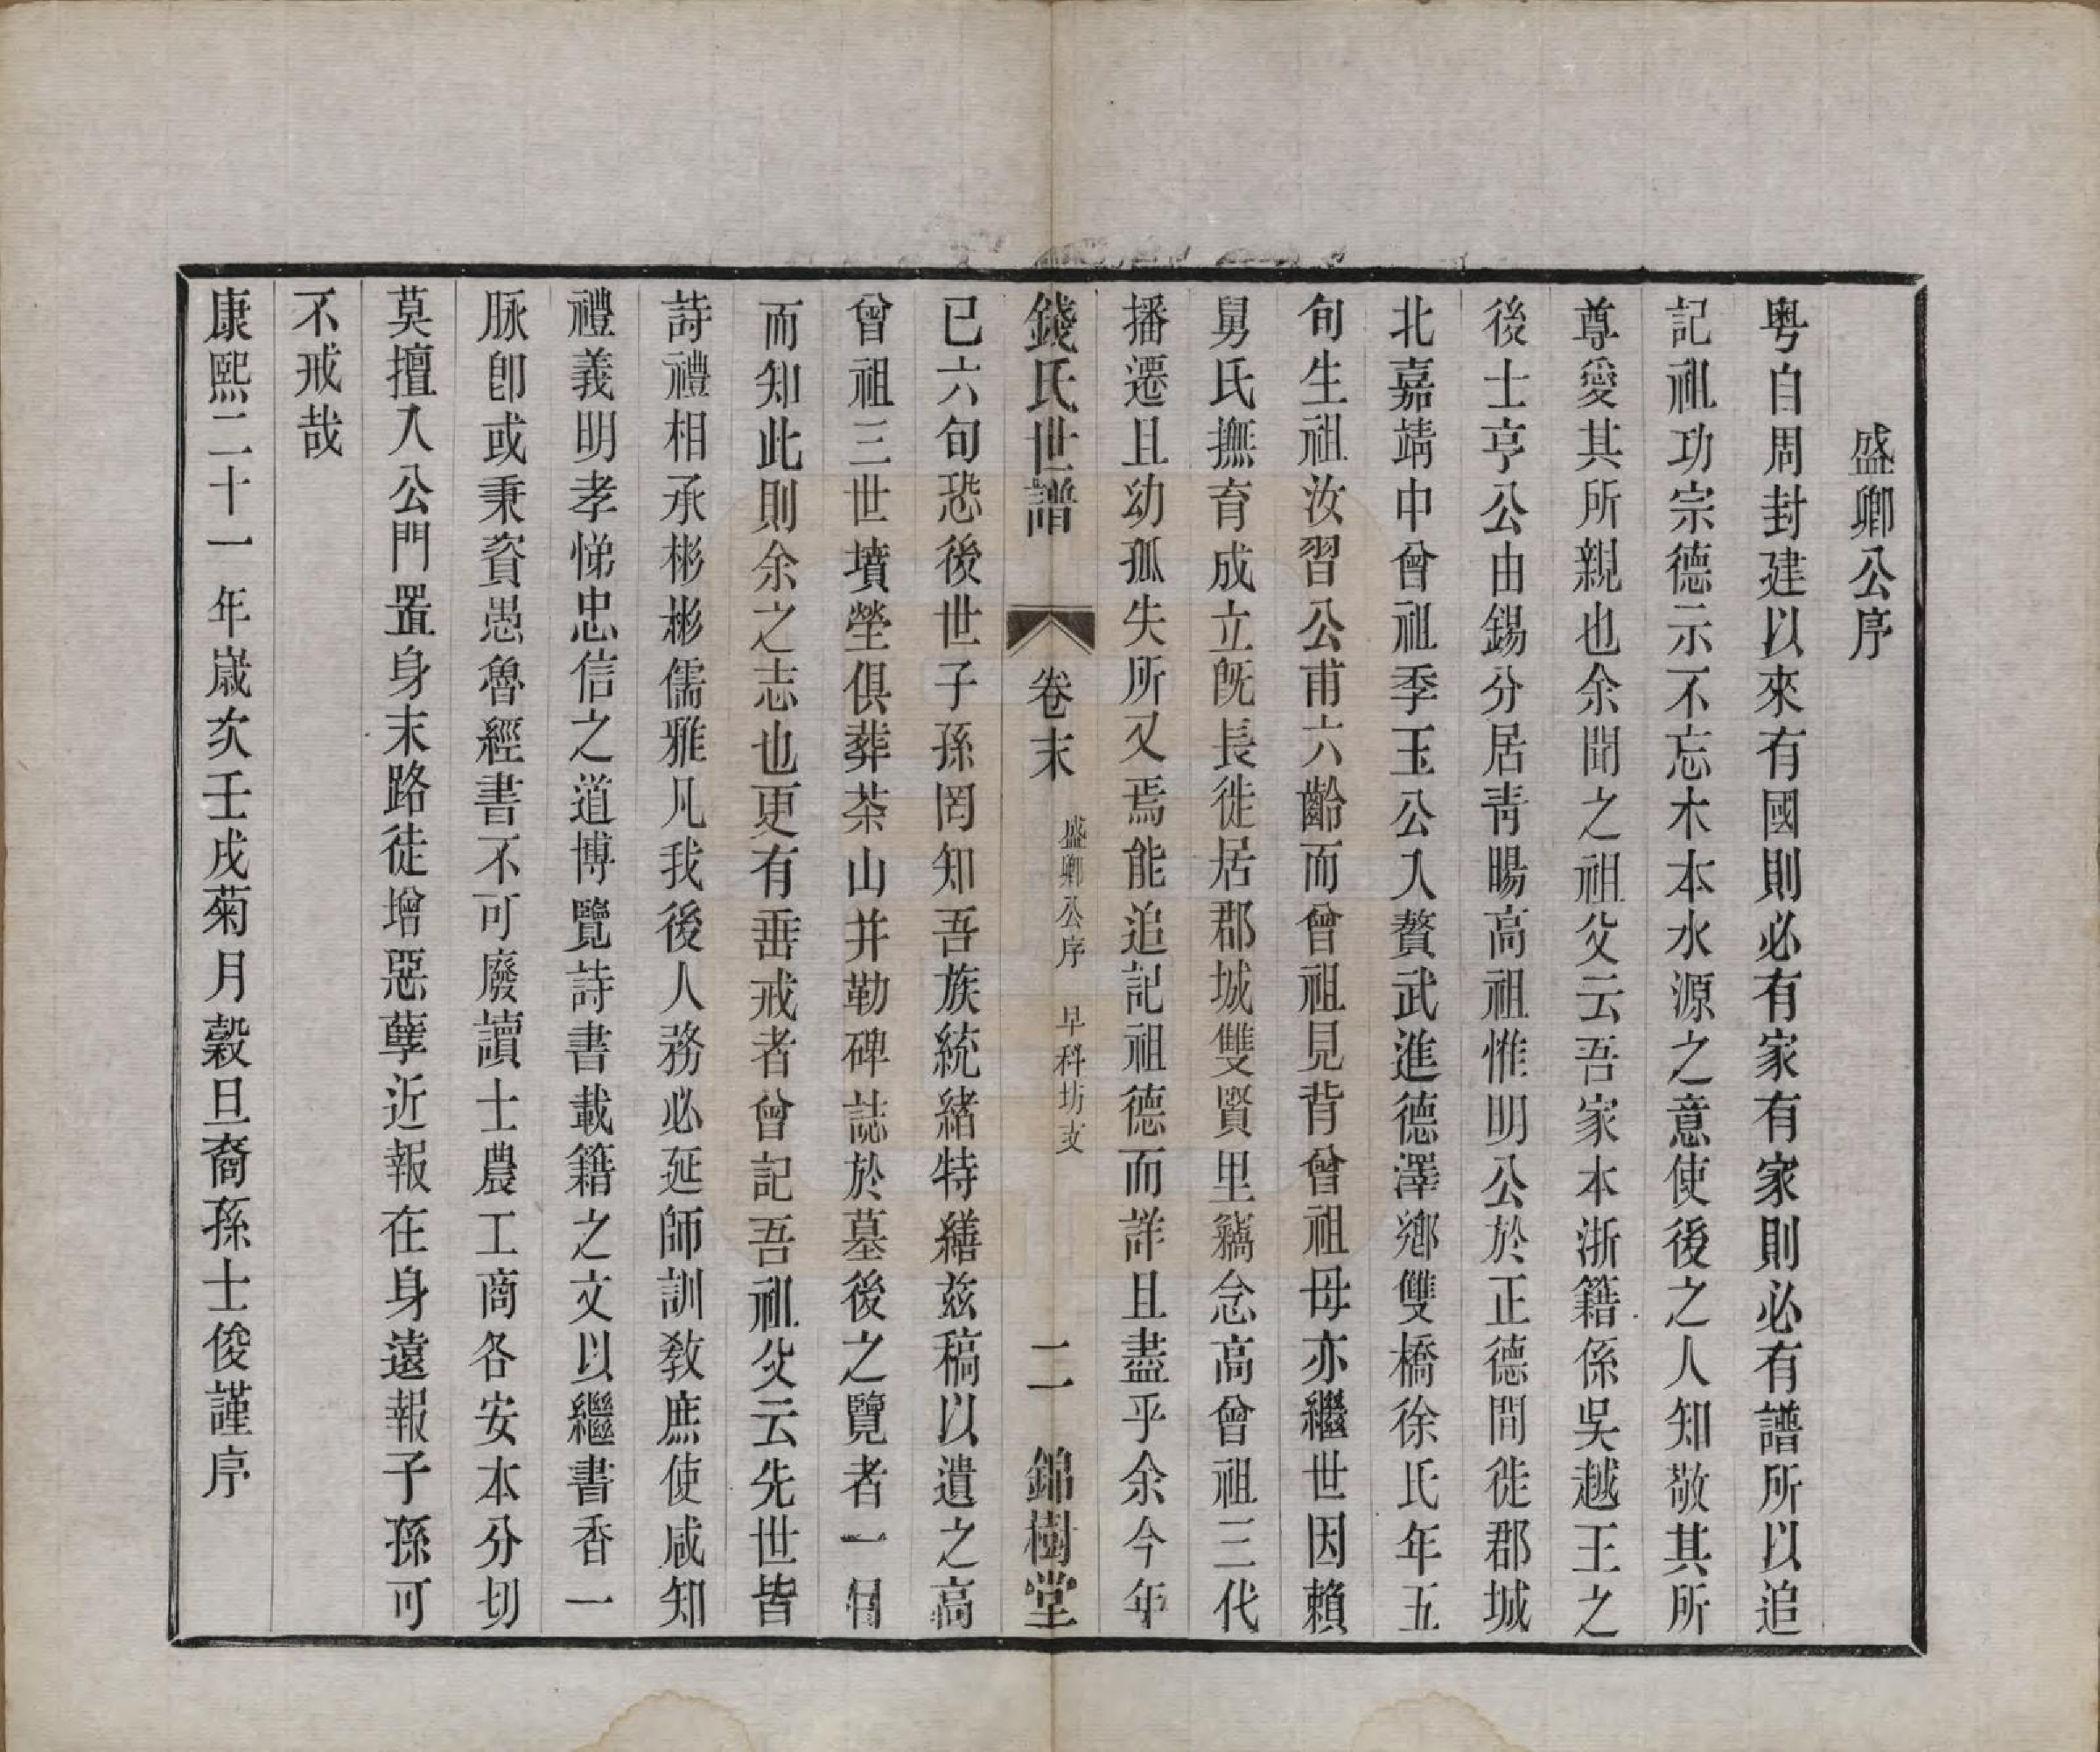 盛卿公序
粤自周封建以來有國則必有家有家則必有譜所以追
記祖功宗德示不忘木本水源之意使後之人知敬其所
尊愛其所親也余聞之祖父云吾家本浙籍係吳越王之
後士亨公由錫分居靑暘高祖惟明公於正德間徙郡城
北嘉靖中曾祖季玉公入贅武進德澤鄉雙橋徐氏年五
旬生祖汝習公甫六齡而曾祖見背曾祖母亦繼世因賴
舅氏撫育成立旣長徙居郡城雙賢里竊念高曾祖三代
播遷且幼孤失所又焉能追記祖德而詳且盡乎余今年
錢氏世譜 卷末 盛卿公序 早科坊支 二 錦樹堂
已六旬恐後世子孫罔知吾族統緒特繕茲稿以遺之高
曾祖三世墳塋俱葬茶山并勒碑誌於墓後之覽者一目
而知此則余之志也更有垂戒者曾記吾祖父云先世皆
詩禮相承彬彬儒雅凡我後人務必延師訓敎庶使咸知
禮義明孝悌忠信之道博覽詩書載籍之文以繼書香一
脉卽或秉資愚魯經書不可廢讀士農工商各安本分切
莫擅入公門置身末路徒增惡孽近報在身遠報子孫可
不戒哉
康熙二十一年歲次壬戌菊月穀旦裔孫士俊謹序